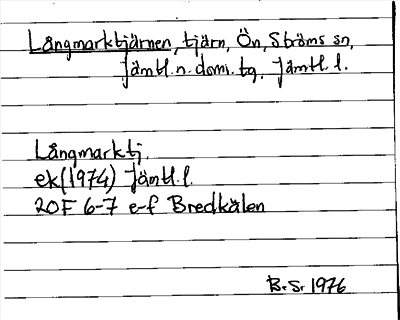 Långmarktjärnen, tjärn, Ön, Ströms sn,
Jämtl. n. doms. tg, Jämtl. l.
Långmarktj.
ek (1974) Jämtl. l.
20F 6-7 e-f Bredkälen
B. S. 1976